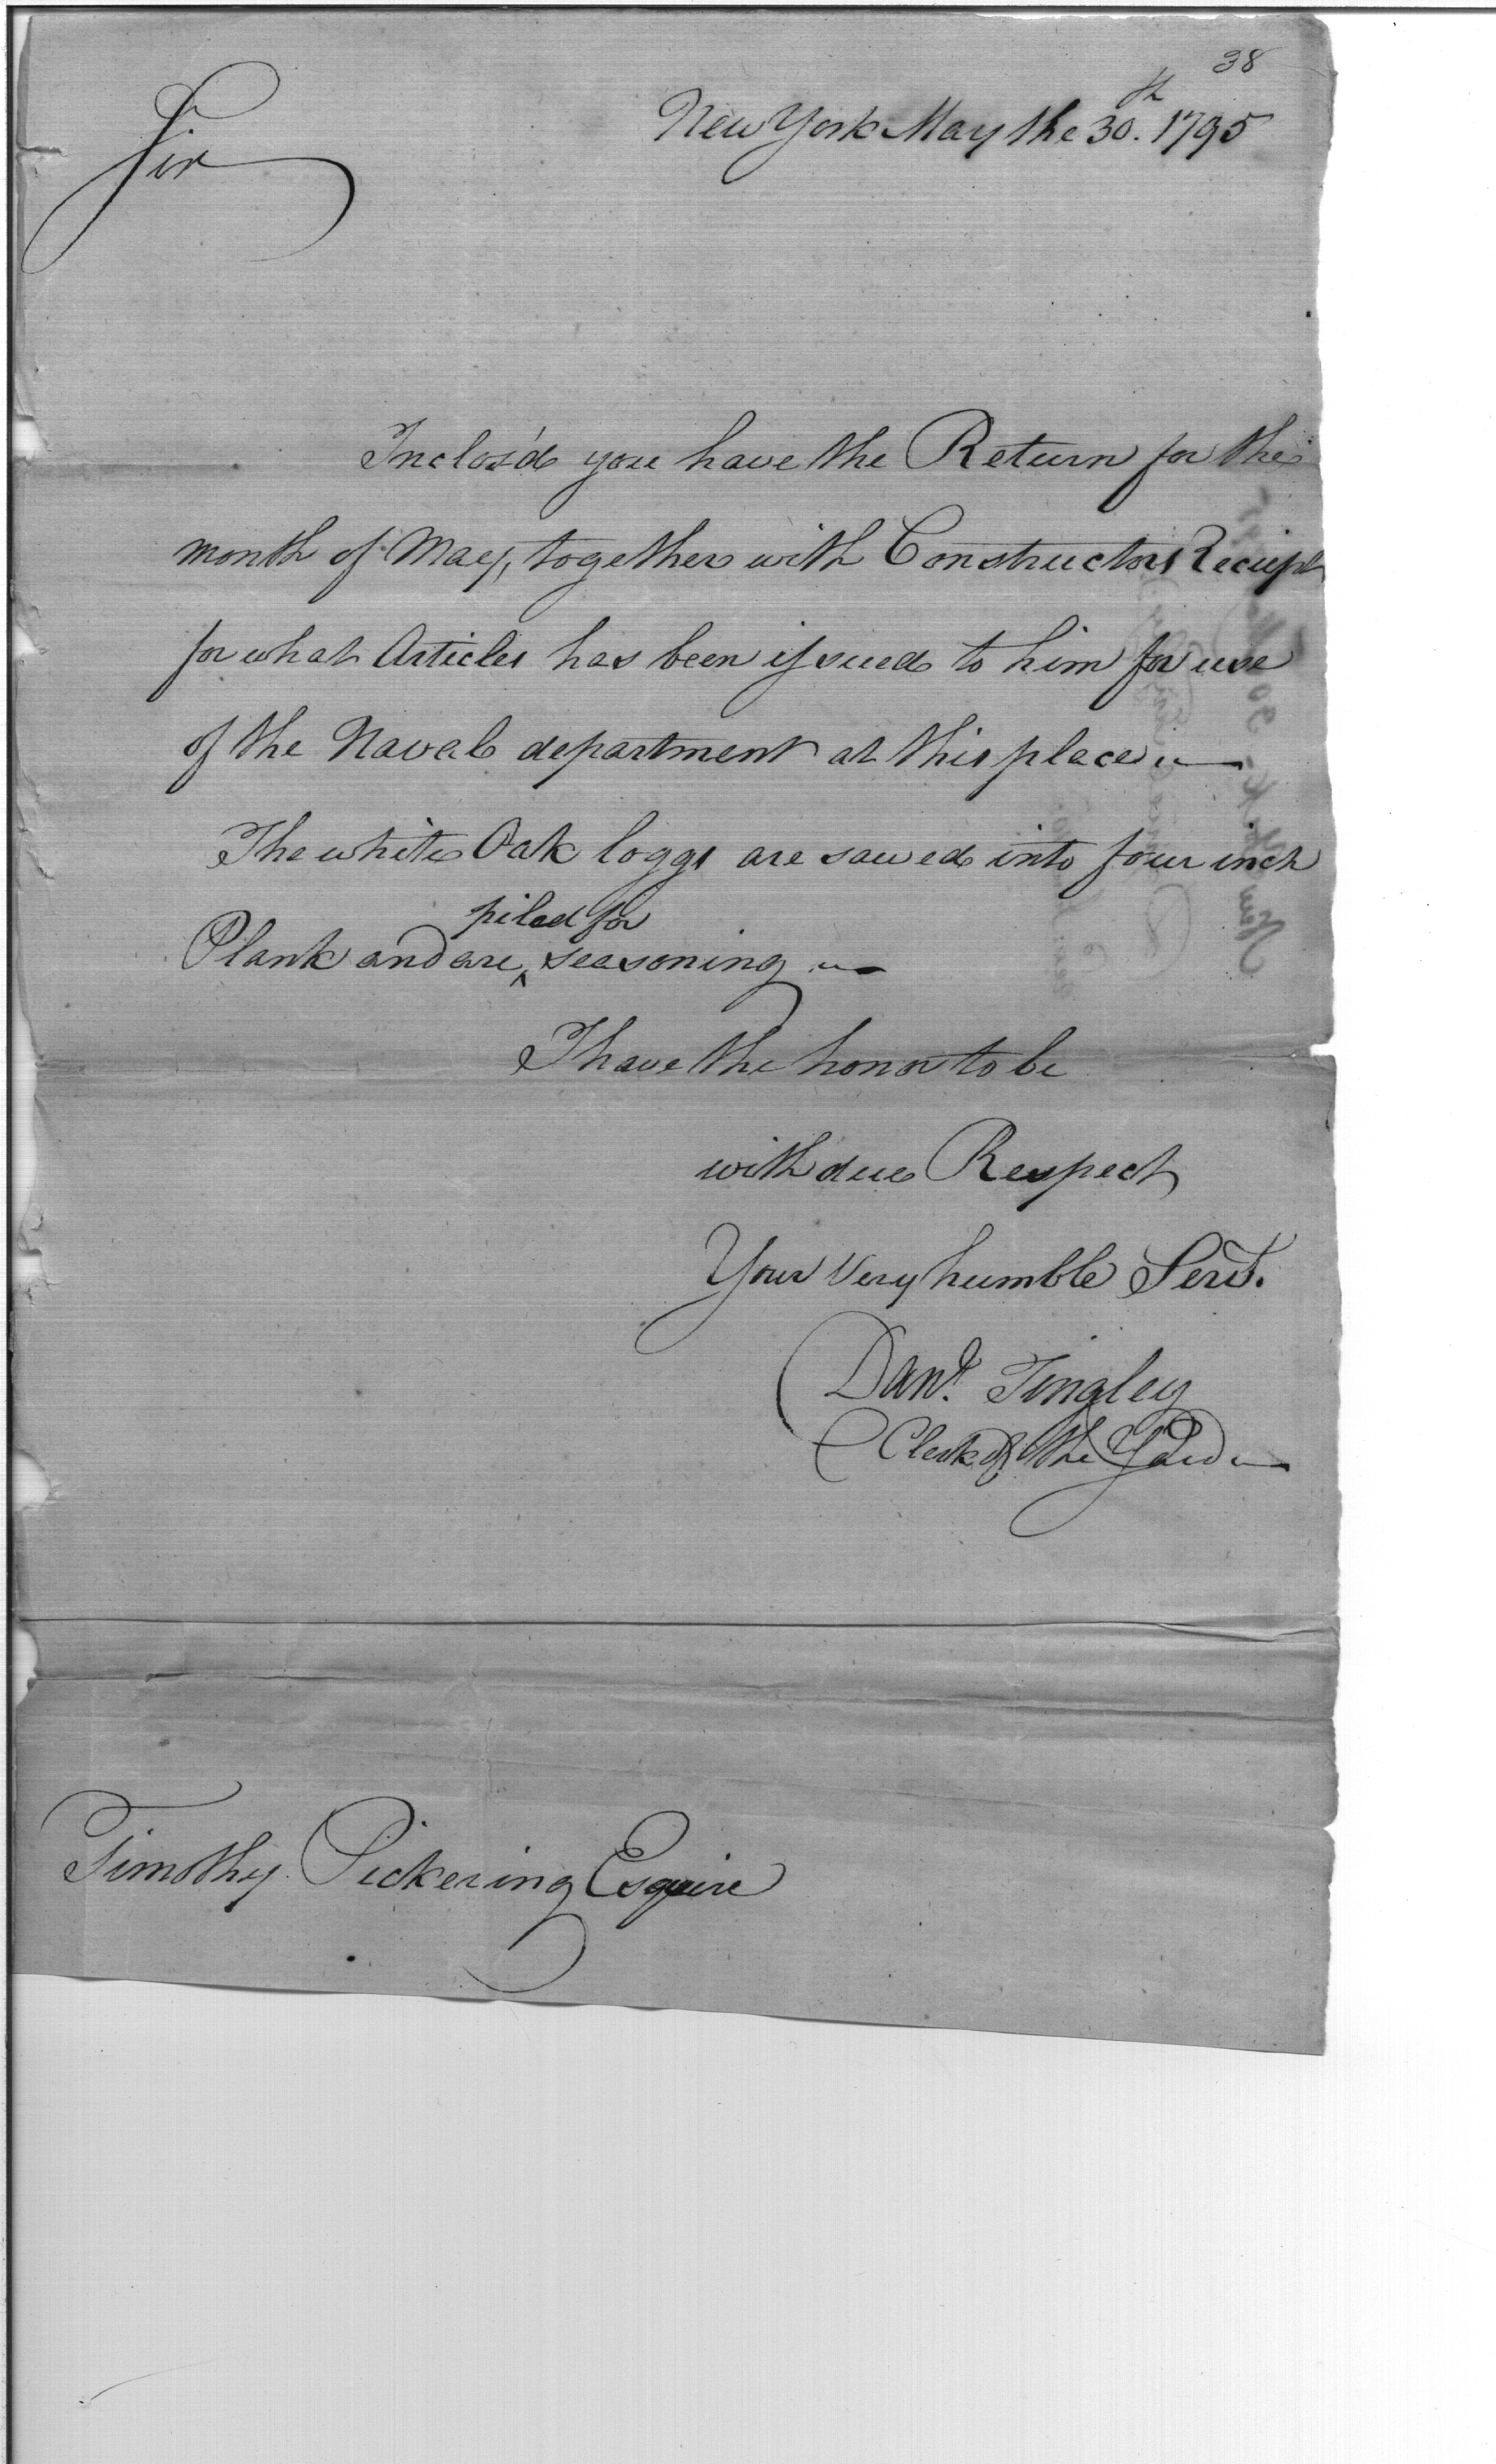 38
New York May the 30th. 1795
Sir
Inclos'd you have the Return for the
month of May, together with Constructors Reciept
for what Articles has been issued to him for use
of the Naval department at this place
The white Oak loggs are sawed into four inch
piled for
Plank and are ^ seasoning
I have the honor to be
with due Respect
Your Very humble Servt.
Danl. Tingley
Clerk of the Yard
Timothy Pickering Esquire